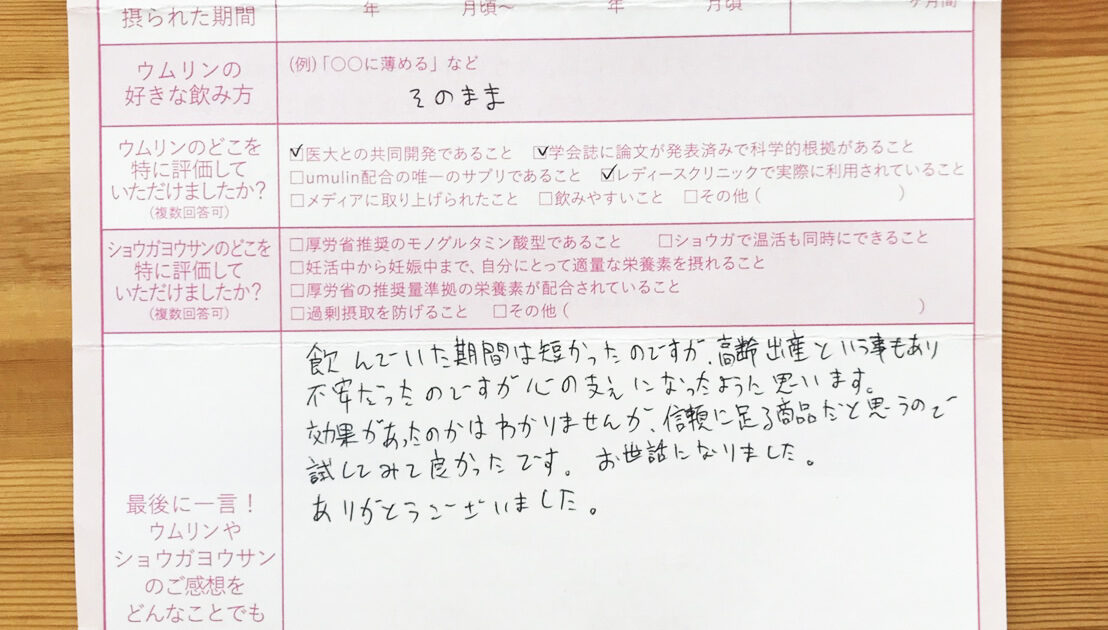 摂られた期間
年 月頃〜 年 月頃
ヶ月間
ウムリンの
好きな飲み方
(例)「○○に薄める」など
そのまま
ウムリンのどこを
特に評価して
いただけましたか?
(複数回答可)
☑医大との共同開発であること ☑学会誌に論文が発表済みで科学的根拠があること
□umulin配合の唯一のサプリであること ☑レディースクリニックで実際に利用されていること
□メディアに取り上げられたこと □飲みやすいこと □その他( )
ショウガヨウサンのどこを
特に評価して
いただけましたか?
(複数回答可)
□厚労省推奨のモノグルタミン酸型であること □ショウガで温活も同時にできること
□妊活中から妊娠中まで、自分にとって適量な栄養素を摂れること
□厚労省の推奨量準拠の栄養素が配合されていること
□過剰摂取を防げること □その他( )
最後に一言!
ウムリンや
ショウガヨウサン
のご感想を
どんなことでも
飲んでいた期間は短かったのですが、高齢出産という事もあり
不安だったのですが心の支えになったように思います。
効果があったのかはわかりませんが、信頼に足る商品だと思うので
試してみて良かったです。 お世話になりました。
ありがとうございました。